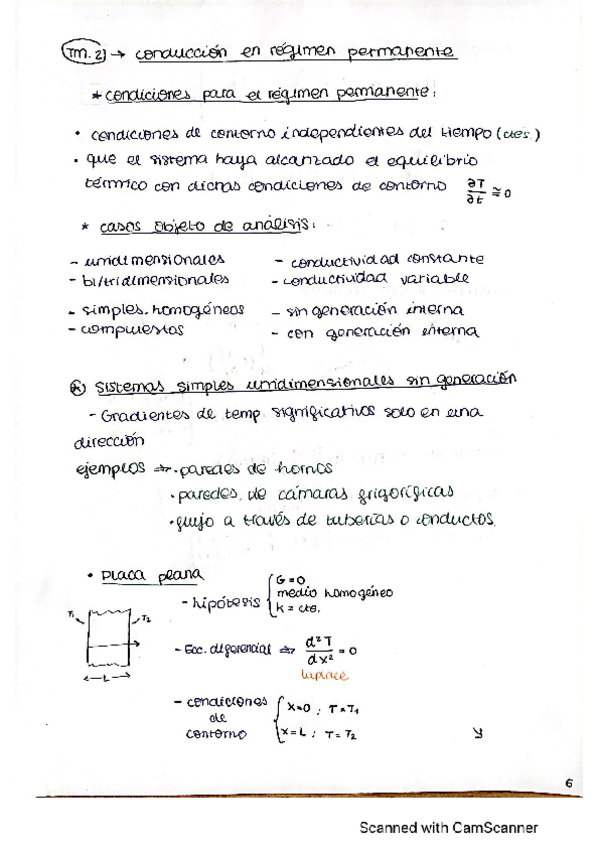 TM. 2) → conducción en régimen permanente
* condiciones para el régimen permanente:
• condiciones de contorno independientes del tiempo (ctes.)
• que el sistema haya alcanzado el equilibrio
térmico con dichas condiciones de contorno ∂T/∂t ≅ 0
* casos objeto de análisis:
- unidimensionales - conductividad constante
- bi/tridimensionales - conductividad variable
- simples. homogéneos - sin generación interna
- compuestos - con generación interna
Ⓐ Sistemas simples unidimensionales sin generación
- Gradientes de temp. significativos solo en una
dirección
ejemplos ⇒ • paredes de hornos
• paredes de cámaras frigoríficas
• flujo a través de tuberías o conductos.
• Placa plana
- hipótesis { G=0
medio homogéneo
K = cte.
T1 T2
L
- Ecc. diferencial ⇒ d²T/dx² = 0
Laplace
- condiciones de contorno { x=0 ; T=T1
x=L ; T=T2
6
Scanned with CamScanner